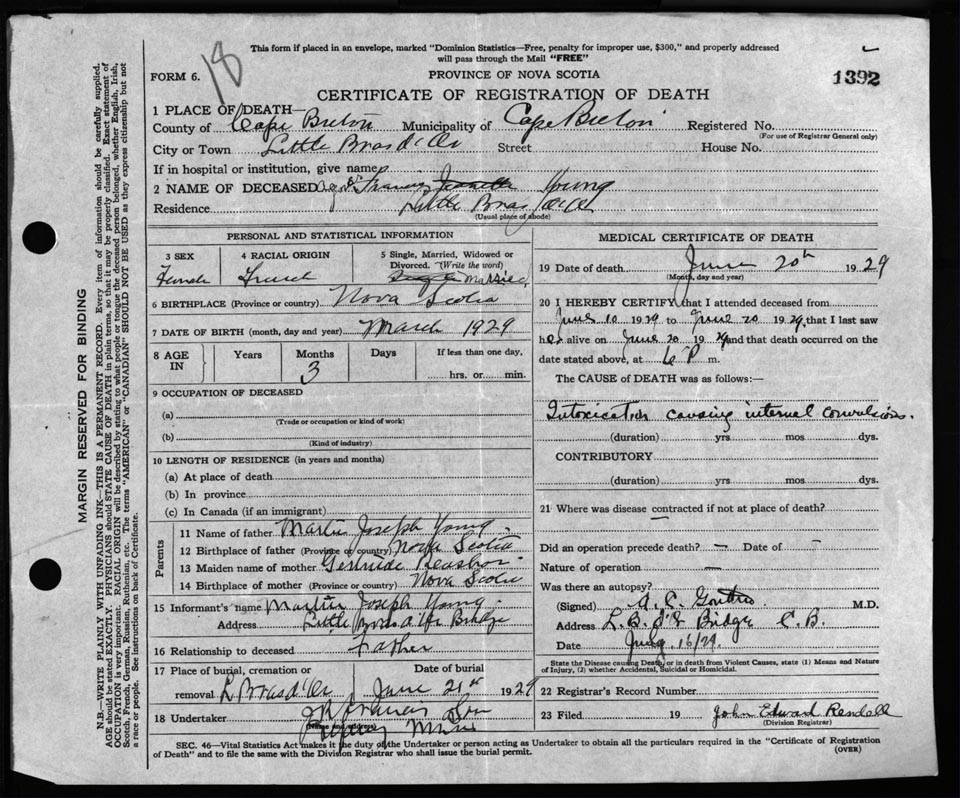 18
This form if placed in an envelope, marked "Dominion Statistics—Free, penalty for improper use, $300," and properly addressed
will pass through the Mail "FREE"
FORM 6.
PROVINCE OF NOVA SCOTIA
1392
CERTIFICATE OF REGISTRATION OF DEATH
1 PLACE OF DEATH—
County of Cape Breton Municipality of Cape Breton Registered No.
(For use of Registrar General only)
City or Town Little Bras d'Or Street House No.
If in hospital or institution, give name
2 NAME OF DECEASED Francis Young
Residence Little Bras d'Or
(Usual place of abode)
PERSONAL AND STATISTICAL INFORMATION
3 SEX 4 RACIAL ORIGIN 5 Single, Married, Widowed or
Divorced. (Write the word)
Female French Single Married
6 BIRTHPLACE (Province or country) Nova Scotia
7 DATE OF BIRTH (month, day and year) March 1929
8 AGE IN Years Months Days If less than one day,
3 hrs. or min.
9 OCCUPATION OF DECEASED
(a)
(Trade or occupation or kind of work)
(b)
(Kind of industry)
10 LENGTH OF RESIDENCE (in years and months)
(a) At place of death
(b) In province
(c) In Canada (if an immigrant)
Parents
11 Name of father Martin Joseph Young
12 Birthplace of father (Province or country) Nova Scotia
13 Maiden name of mother Gertrude
14 Birthplace of mother (Province or country) Nova Scotia
15 Informant's name Martin Joseph Young
Address Little Bras d'Or Bridge
16 Relationship to deceased Father
17 Place of burial, cremation or Date of burial
removal L Bras d'Or June 21st 1929
18 Undertaker
Sydney Mines
MEDICAL CERTIFICATE OF DEATH
19 Date of death June 20th 1929
(Month, day and year)
20 I HEREBY CERTIFY that I attended deceased from
June 10 1929 to June 20 1929, that I last saw
her alive on June 20 1929 and that death occurred on the
date stated above, at 6 P m.
The CAUSE of DEATH was as follows:—
Intoxication causing internal convulsions.
(duration) yrs mos dys.
CONTRIBUTORY
(duration) yrs. mos. dys.
21 Where was disease contracted if not at place of death?
Did an operation precede death? — Date of —
Nature of operation —
Was there an autopsy?
(Signed) A. C. Gouthro M.D.
Address L. B. d'Or Bridge C.B.
Date July 16/29.
State the Disease causing Death, or in death from Violent Causes, state (1) Means and Nature
of Injury, (2) whether Accidental, Suicidal or Homicidal.
22 Registrar's Record Number
23 Filed 19 John Edward Rendall
(Division Registrar)
SEC. 46—Vital Statistics Act makes it the duty of the Undertaker or person acting as Undertaker to obtain all the particulars required in the "Certificate of Registration
of Death" and to file the same with the Division Registrar who shall issue the burial permit.
(OVER)
MARGIN RESERVED FOR BINDING
N.B.—WRITE PLAINLY WITH UNFADING INK—THIS IS A PERMANENT RECORD. Every item of information should be carefully supplied.
AGE should be stated EXACTLY. PHYSICIANS should STATE CAUSE OF DEATH in plain terms, so that it may be properly classified. Exact statement of
OCCUPATION is very important. RACIAL ORIGIN will be described by stating to what people or tongue the deceased person belonged, whether English, Irish,
Scotch, French, German, Russian, Ruthenian, etc. The terms "AMERICAN" or "CANADIAN" SHOULD NOT BE USED as they express citizenship but not
a race or people. See instructions on back of Certificate.